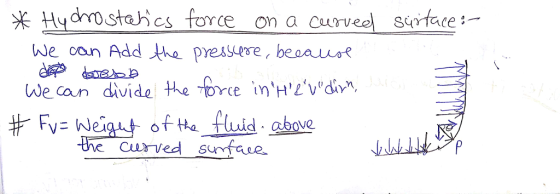 * Hydrostatics force on a curved surface:-
We can Add the pressure, because
We can divide the force in 'H' & 'V' dirⁿ.
# Fv = Weight of the fluid. above
the curved surface
P